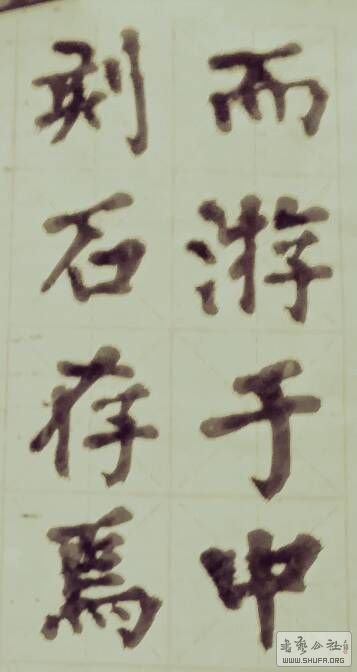 而游于中
刻石存焉
书艺公社
WWW.SHUFA.ORG